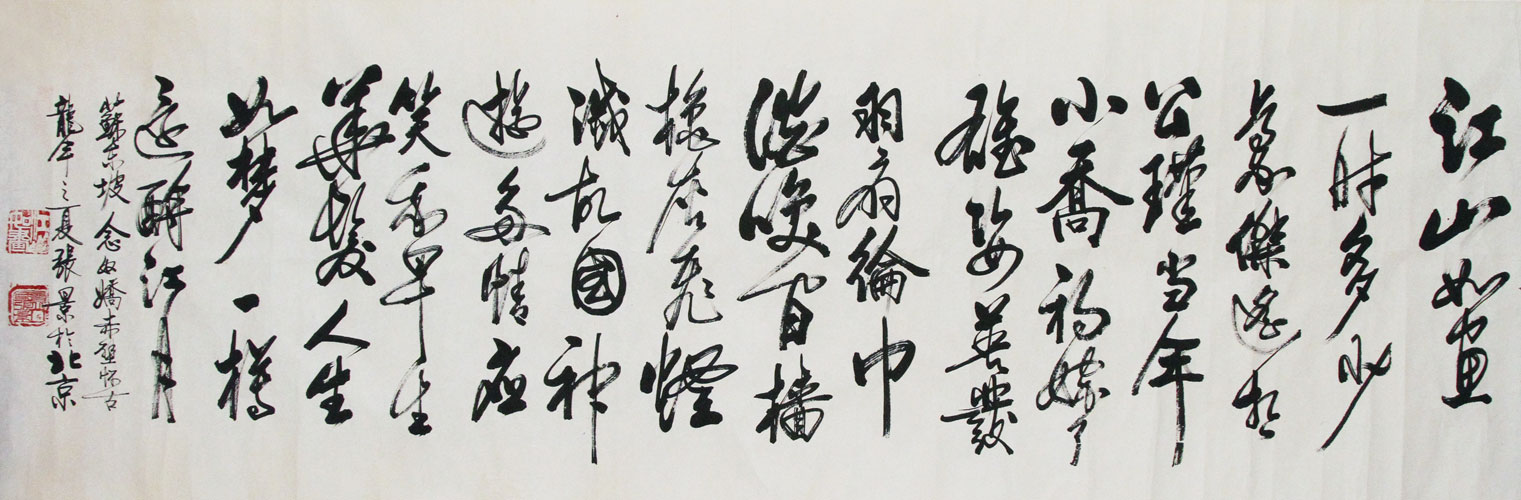 江山如畫
一时多少
豪傑遙想
公瑾当年
小喬初嫁了
雄姿英發
羽扇綸巾
談咲间檣
櫓灰飛煙
滅故國神
遊多情應
笑我早生
華髮人生
如梦一樽
還酹江月
蘇东坡念奴嬌赤壁怀古
龍年之夏張景於北京